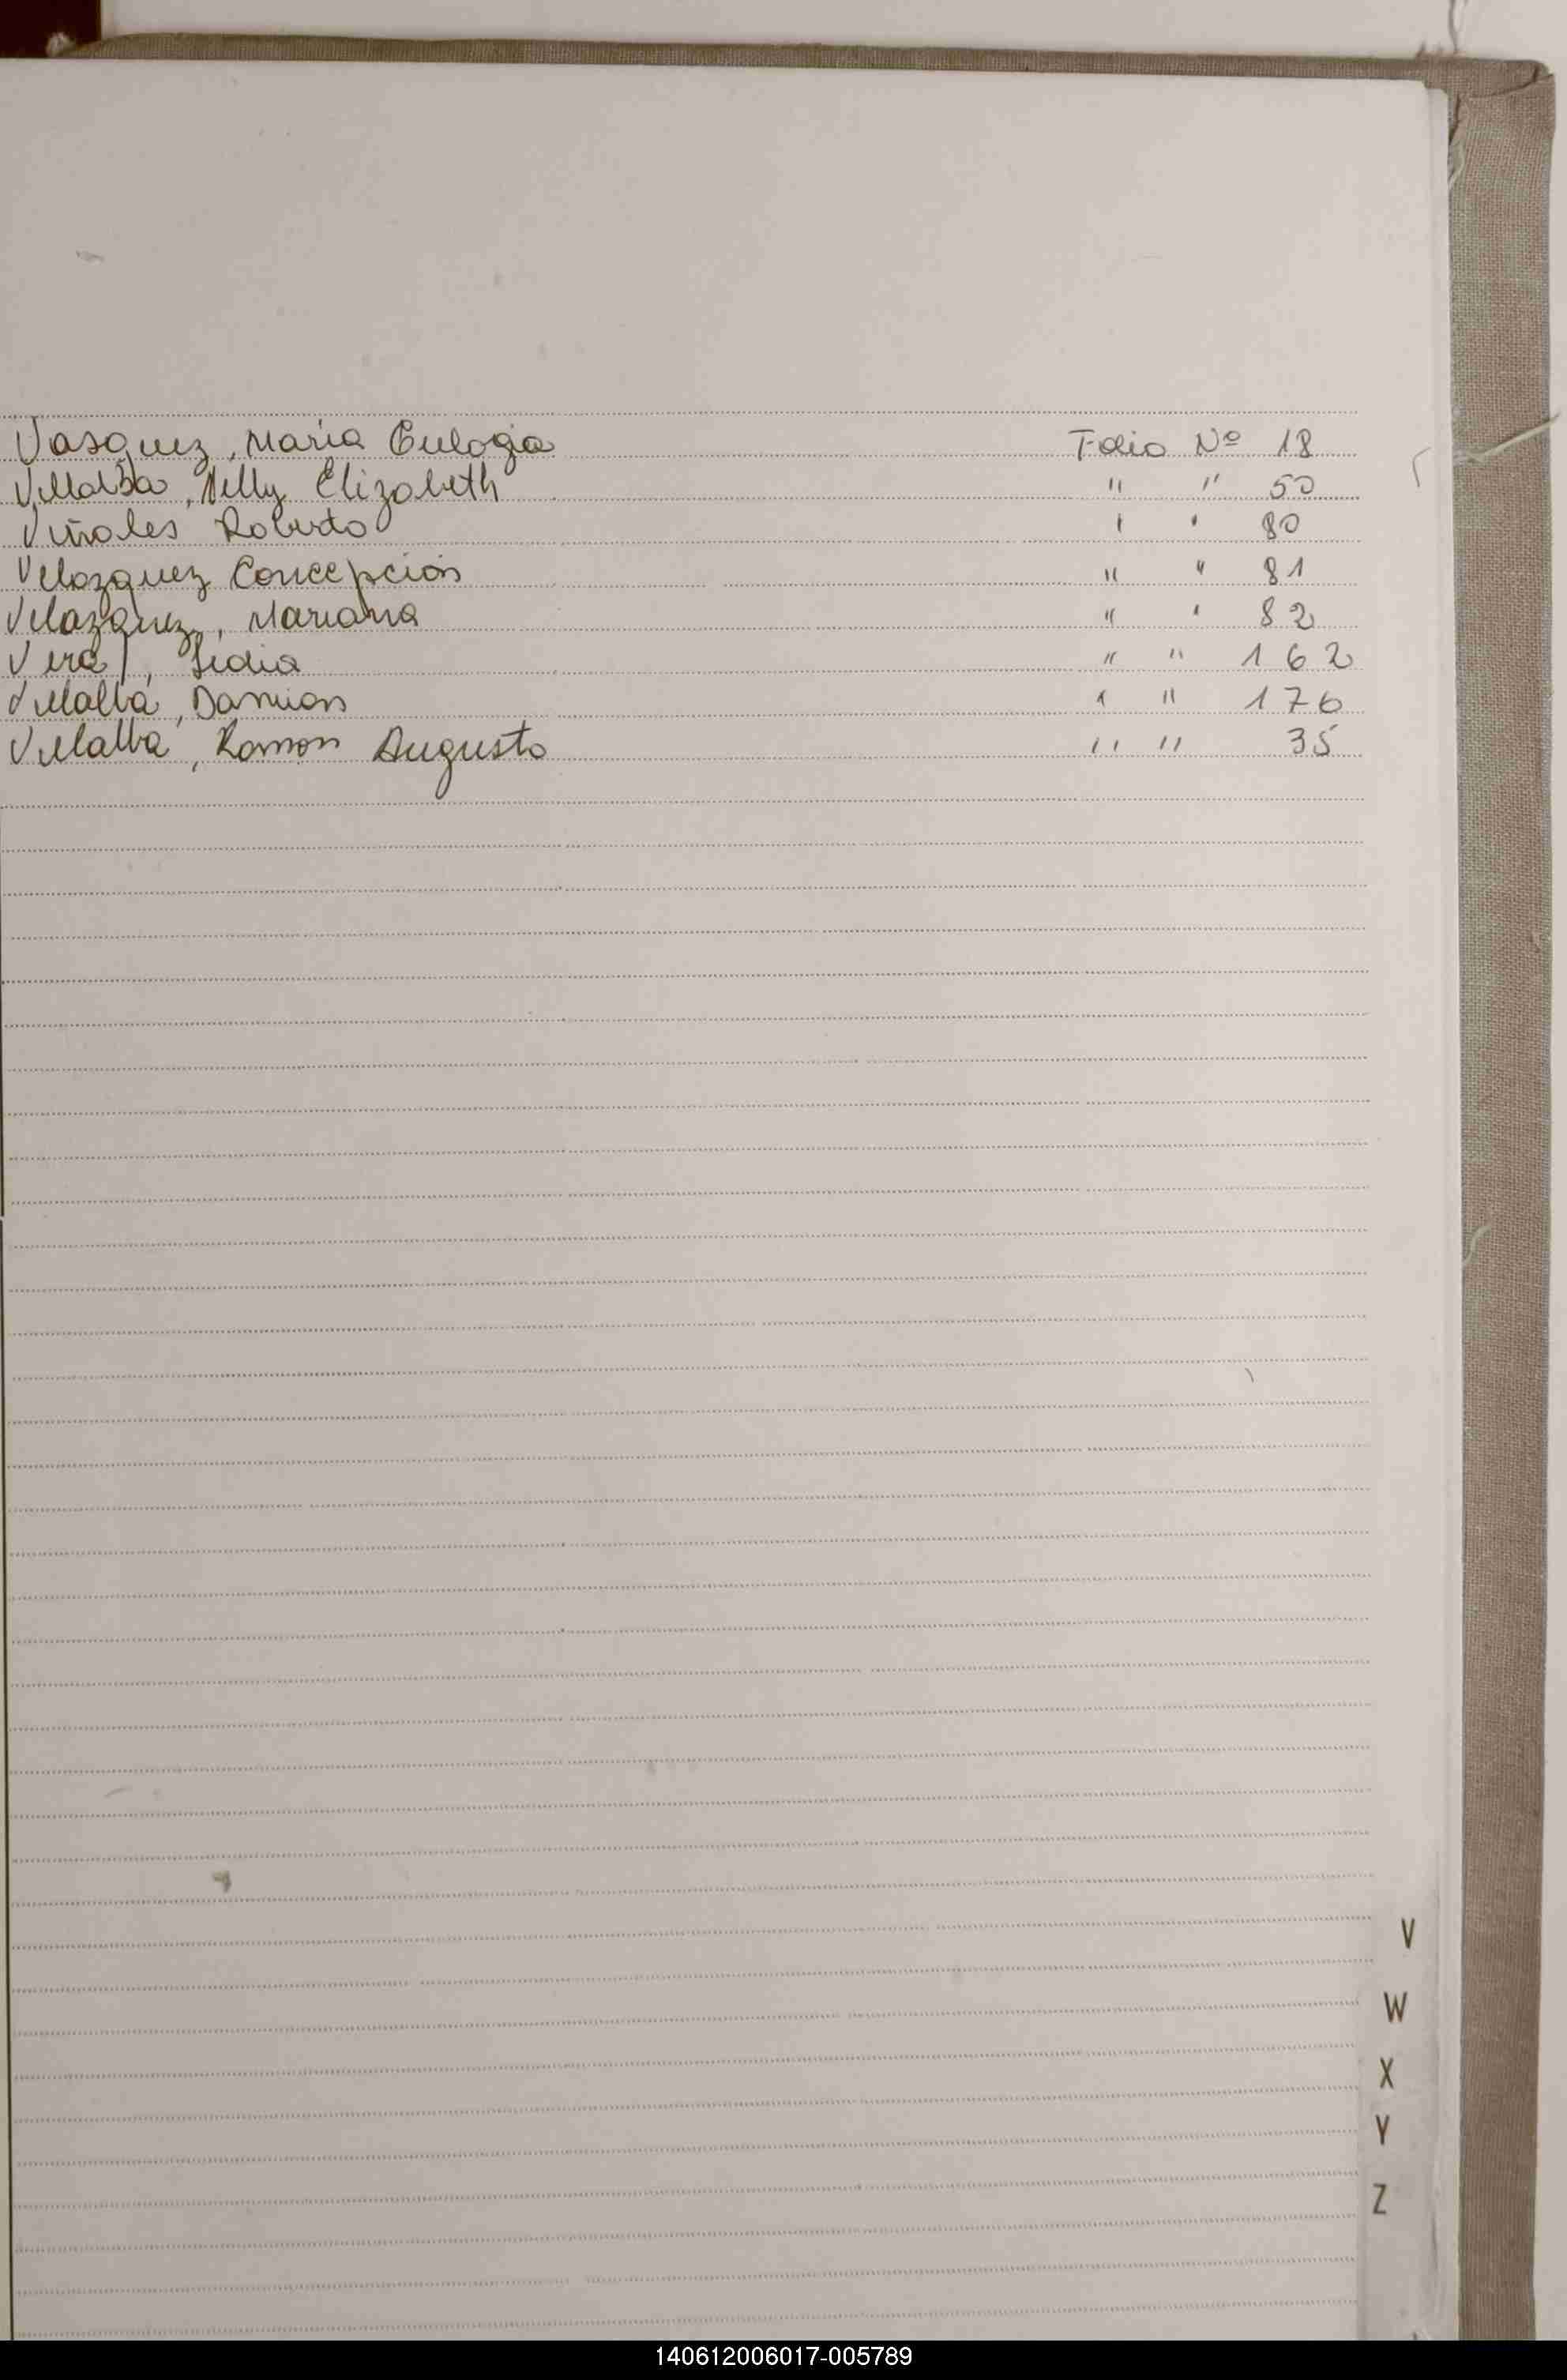 Vasquez, Maria Eulogia Folio Nº 18
Villalba, Nelly Elizabeth " " 50
Viñales Roberto " " 80
Velazquez Concepción " " 81
Velazquez, Mariana " " 82
Vera, Lidia " " 162
Villalba, Damian " " 176
Villalba, Ramon Augusto " " 35
V
W
X
Y
Z
140612006017-005789